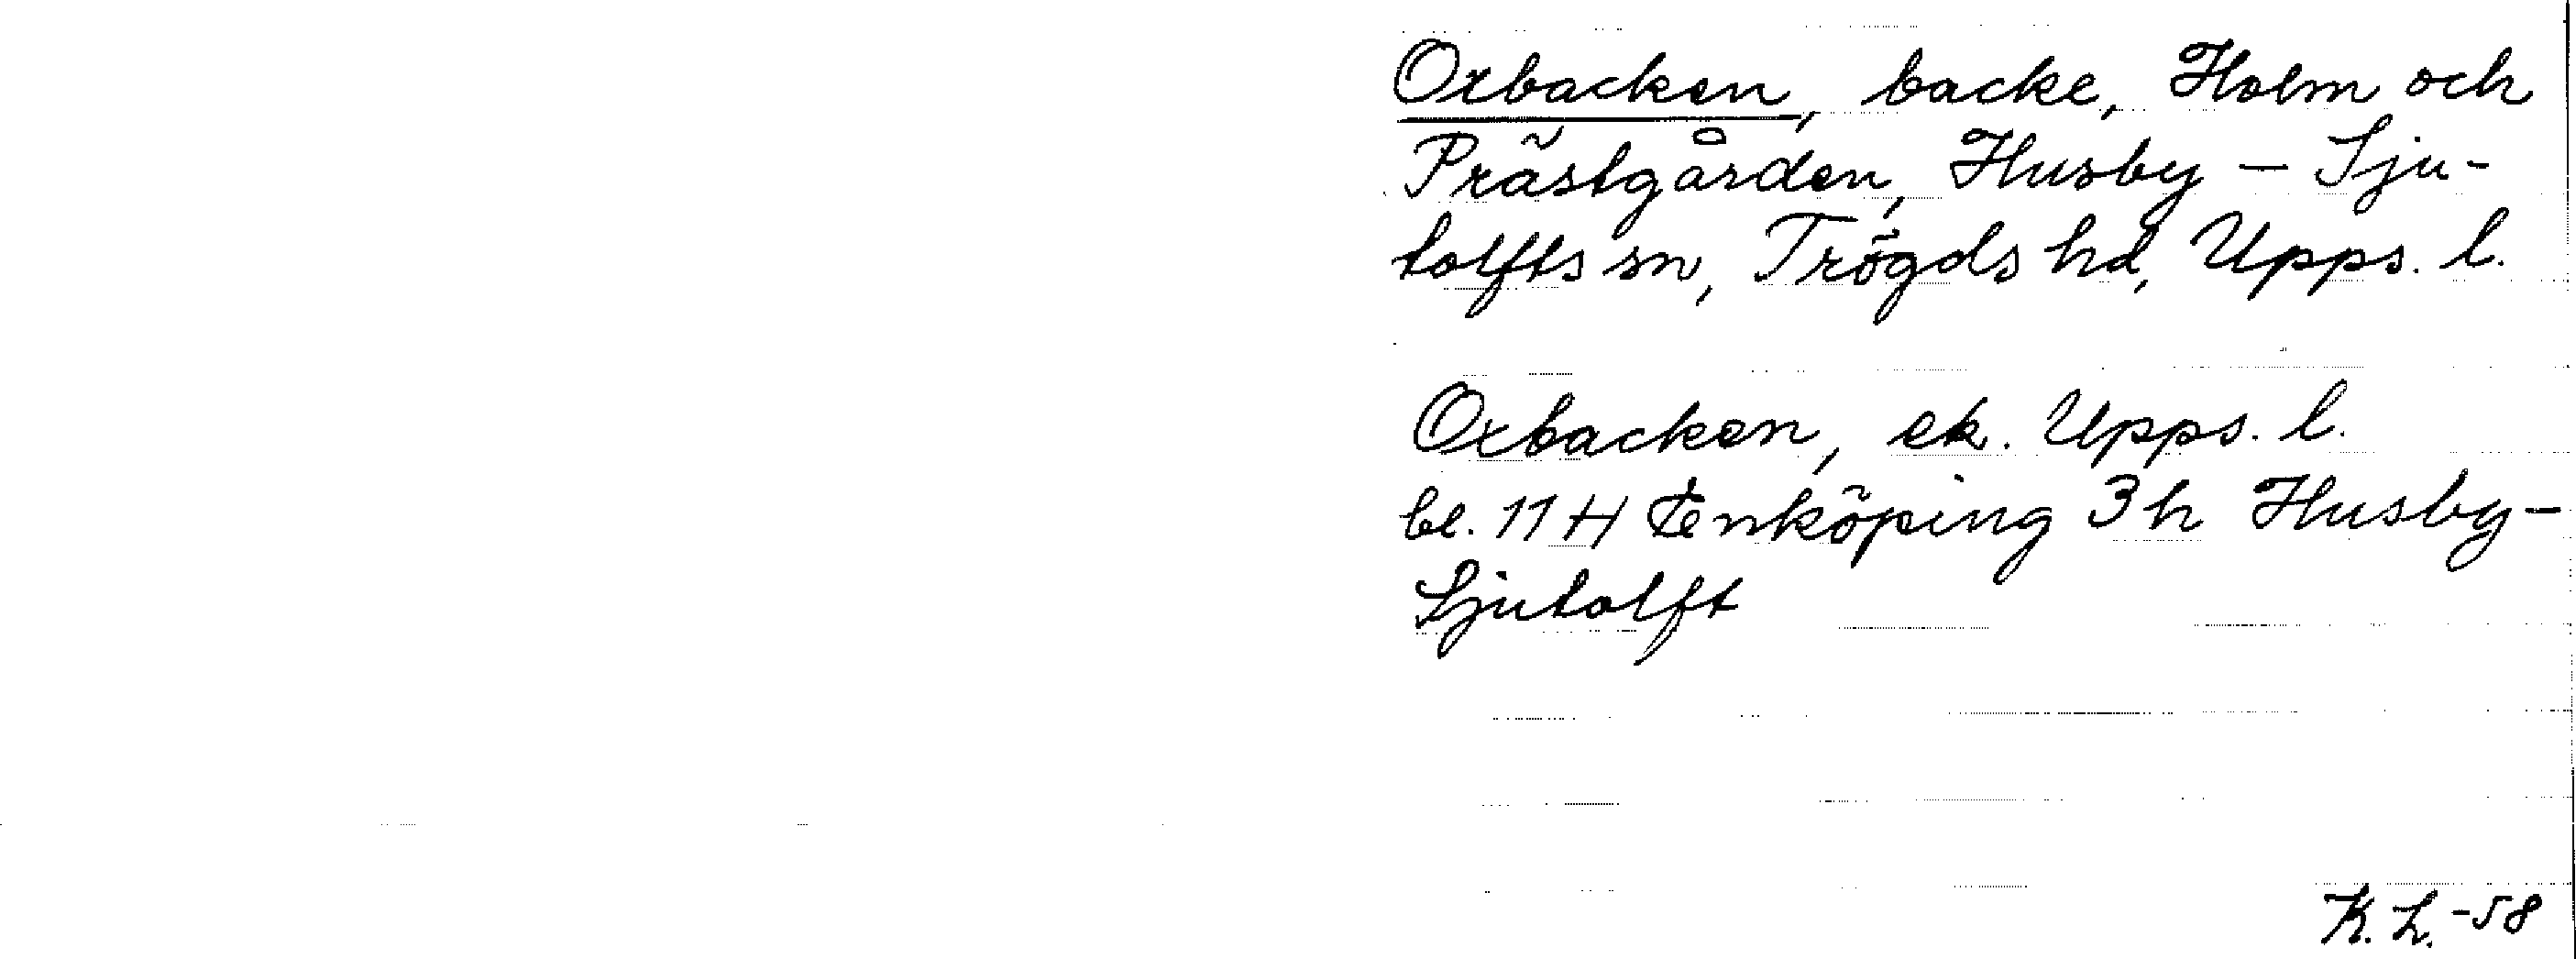 Oxbacken, backe, Holm och
Prästgården, Husby - Sju-
tolfts sn, Trögds hd, Upps. l.
Oxbacken, ek. Upps. l.
bl. 11 H Enköping 3 h Husby-
Sjutolft
K. L. -58